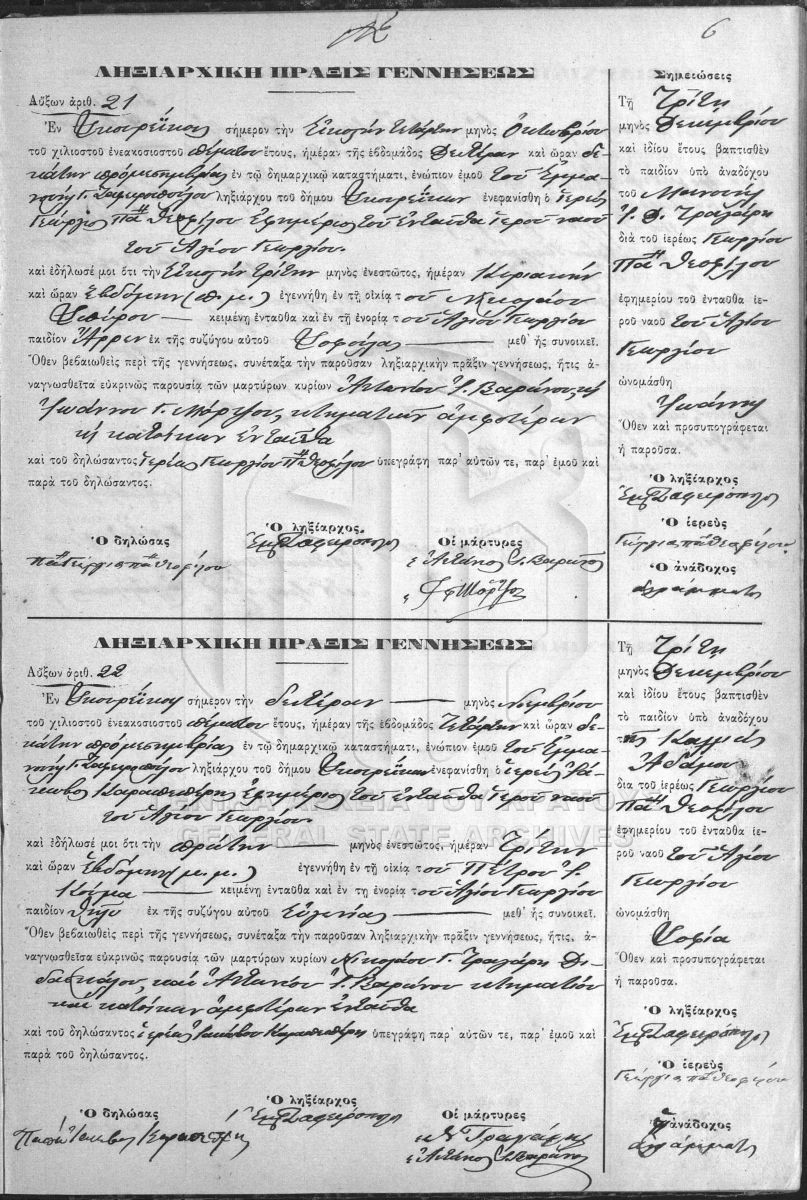 6
ΛΗΞΙΑΡΧΙΚΗ ΠΡΑΞΙΣ ΓΕΝΝΗΣΕΩΣ
Αὔξων ἀριθ. 21
Ἐν Σκορέϊκοις σήμερον τὴν Εἰκοστήν τετάρτην μηνὸς Ὀκτωβρίου
τοῦ χιλιοστοῦ ἐνεακοσιοστοῦ πέμπτου ἔτους, ἡμέραν τῆς ἑβδομάδος Δευτέραν καὶ ὥραν δε-
κάτην προμεσημβρίας ἐν τῷ δημαρχικῷ καταστήματι, ἐνώπιον ἐμοῦ τοῦ Ἐμμα-
νουὴλ Γ. Ζαφειροπούλου ληξιάρχου τοῦ δήμου ἐνεφανίσθη ὁ ἱερεὺς
Γεώργιος Παπᾶ Θεοφίλου Ἐφημέριος τοῦ ἐνταῦθα ἱεροῦ ναοῦ
τοῦ Ἁγίου Γεωργίου.
καὶ ἐδήλωσέ μοι ὅτι τὴν Εἰκοστήν τρίτην μηνὸς ἐνεστῶτος, ἡμέραν Κυριακήν
καὶ ὥραν Ἑβδόμην (π.μ.) ἐγεννήθη ἐν τῇ οἰκίᾳ τοῦ Νικολάου
Σπύρου κειμένῃ ἐνταῦθα καὶ ἐν τῇ ἐνορίᾳ τοῦ Ἁγίου Γεωργίου
παιδίον Ἄρρεν ἐκ τῆς συζύγου αὐτοῦ μεθ' ἧς συνοικεῖ.
Ὅθεν βεβαιωθεὶς περὶ τῆς γεννήσεως, συνέταξα τὴν παροῦσαν ληξιαρχικὴν πρᾶξιν γεννήσεως, ἥτις ἀ-
ναγνωσθεῖσα εὐκρινῶς παρουσίᾳ τῶν μαρτύρων κυρίων Ἀντωνίου Ἰ. Βαρώνου καὶ
Ἰωάννου Γ. Μόρτζου, κτηματιῶν ἀμφοτέρων
καὶ κατοίκων ἐνταῦθα
καὶ τοῦ δηλώσαντος ἱερέως Γεωργίου Πᾶ Θεοφίλου ὑπεγράφη παρ' αὐτῶν τε, παρ' ἐμοῦ καὶ
παρὰ τοῦ δηλώσαντος.
Ὁ δηλώσας
Ὁ ληξίαρχος
Οἱ μάρτυρες
Ἐμ Ζαφειρόπουλος
Ἀντώνιος Ἰ. Βαρώνος
Σημειώσεις
Τῇ Τρίτῃ
μηνὸς Δεκεμβρίου
καὶ ἰδίου ἔτους βαπτισθὲν
τὸ παιδίον ὑπὸ ἀναδόχου
τοῦ Μανουὴλ
Τραγάρη
διὰ τοῦ ἱερέως Γεωργίου
Πᾶ Θεοφίλου
ἐφημερίου τοῦ ἐνταῦθα ἱε-
ροῦ ναοῦ τοῦ Ἁγίου
Γεωργίου
ὠνομάσθη
Ἰωάννης
Ὅθεν καὶ προσυπογράφεται
ἡ παροῦσα.
Ὁ ληξίαρχος
Ἐμ Ζαφειρόπουλος
Ὁ ἱερεὺς
Ὁ ἀνάδοχος
ἀγράμματος
ΛΗΞΙΑΡΧΙΚΗ ΠΡΑΞΙΣ ΓΕΝΝΗΣΕΩΣ
Αὔξων ἀριθ. 22
Ἐν Σκορέϊκοις σήμερον τὴν δευτέραν μηνὸς Νοεμβρίου
τοῦ χιλιοστοῦ ἐνεακοσιοστοῦ πέμπτου ἔτους, ἡμέραν τῆς ἑβδομάδος Τετάρτην καὶ ὥραν δε-
κάτην προμεσημβρίας ἐν τῷ δημαρχικῷ καταστήματι, ἐνώπιον ἐμοῦ τοῦ Ἐμμα-
νουὴλ Γ. Ζαφειροπούλου ληξιάρχου τοῦ δήμου ἐνεφανίσθη ὁ ἱερεὺς Ἰά-
κωβος Καραπιπέρης Ἐφημέριος τοῦ ἐνταῦθα ἱεροῦ ναοῦ
τοῦ Ἁγίου Γεωργίου.
ΓΕΝΙΚΑ ΑΡΧΕΙΑ ΤΟΥ ΚΡΑΤΟΥΣ
GENERAL STATE ARCHIVES
καὶ ἐδήλωσέ μοι ὅτι τὴν πρώτην μηνὸς ἐνεστῶτος, ἡμέραν Τρίτην
καὶ ὥραν Ἑβδόμην (μ.μ.) ἐγεννήθη ἐν τῇ οἰκίᾳ τοῦ Πέτρου Ἰ.
Κοσμᾶ κειμένῃ ἐνταῦθα καὶ ἐν τῃ ἐνορίᾳ τοῦ Ἁγίου Γεωργίου
παιδίον Θῆλυ ἐκ τῆς συζύγου αὐτοῦ Εὐγενίας μεθ' ἧς συνοικεῖ.
Ὅθεν βεβαιωθεὶς περὶ τῆς γεννήσεως, συνέταξα τὴν παροῦσαν ληξιαρχικὴν πρᾶξιν γεννήσεως, ἥτις, ἀ-
ναγνωσθεῖσα εὐκρινῶς παρουσίᾳ τῶν μαρτύρων κυρίων Νικολάου Γ. Τραγάρη Δι-
δασκάλου, καὶ Ἀντωνίου Ἰ. Βαρώνου κτηματίου
καὶ κατοίκων ἀμφοτέρων ἐνταῦθα
καὶ τοῦ δηλώσαντος ἱερέως Ἰακώβου Καραπιπέρη ὑπεγράφη παρ' αὐτῶν τε, παρ' ἐμοῦ καὶ
παρὰ τοῦ δηλώσαντος.
Ὁ δηλώσας
Ὁ ληξίαρχος
Οἱ μάρτυρες
Ἐμ Ζαφειρόπουλος
Ν Τραγάρης
Ἀντώνιος Ἰ. Βαρώνος
Τῇ Τρίτῃ
μηνὸς Δεκεμβρίου
καὶ ἰδίου ἔτους βαπτισθὲν
τὸ παιδίον ὑπὸ ἀναδόχου
τῆς
Ἀδάμου
δια τοῦ ἱερέως Γεωργίου
Πᾶ Θεοφίλου
ἐφημερίου τοῦ ἐνταῦθα ἱε-
ροῦ ναοῦ τοῦ Ἁγίου
Γεωργίου
ὠνομάσθη
Σοφία
Ὅθεν καὶ προσυπογράφεται
ἡ παροῦσα.
Ὁ ληξίαρχος
Ἐμ Ζαφειρόπουλος
Ὁ ἱερεὺς
Ὁ ἀνάδοχος
ἀγράμματος